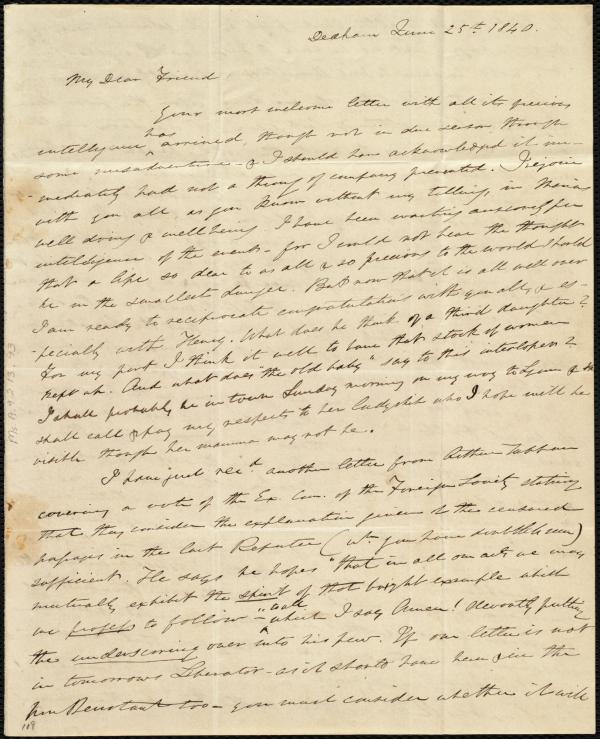 Dedham June 25th 1840.
My Dear Friend,
Your most welcome letter with all its precious
has
intelligence ^ arrived, though not in due season, through
some misadventure - & I should have acknowledged it im-
-mediately had not a throng of company prevented. I rejoice
with you all, as you know without my telling, in Marias
well doing & well being. I have been waiting anxiously for
intelligence of the event - for I could not bear the thought
that a life so dear to us all & so precious to the world should
be in the smallest danger. But now that it is all well over
I am ready to reciprocate congratulations with you all, & es-
-pecially with Henry. What does he think of a third daughter?
For my part I think it well to have that stock of women
kept up. And what does "the old baby" say to this interloper?
I shall probably be in town Sunday morning on my way to Lynn &
shall call & pay my respects to her ladyship who I hope will be
visible though her mamma may not be.
I have just rec'd another letter from Arthur Tappan
covering a vote of the Ex. Com. of the Foreign Society stating
that they consider the explanation given to the censured
passages in the last Reporter (wh. you have doubtless seen)
sufficient. He says he hopes "that in all our acts we may
mutually exhibit the spirit of that bright example which
we profess to follow" - to all
^ which I say Amen! devoutly putting
the underscoring over into his pew. If our letter is not
in tomorrows Liberator - as it should have been & in the
too - you must consider whether it will
119
Ms. A. 9.2. 13. 43